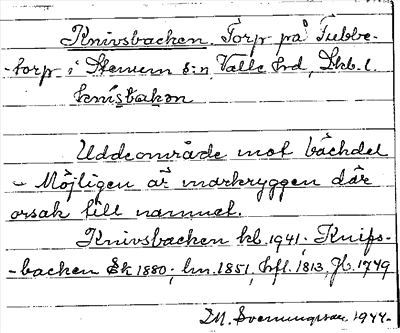 Knivsbacken. Torp på Tubbe-
-torp i Skerum s:n Valle hrd, Skb. l.
knísbakan
Uddeområde mot bäckdel
- Möjligen är markryggen där
orsak till namnet.
Knivsbacken kb. 1941; Knifs-
-backen Ek 1880; lm. 1851, hfl. 1813, Jb. 1749
M. Svenungsson 1944.